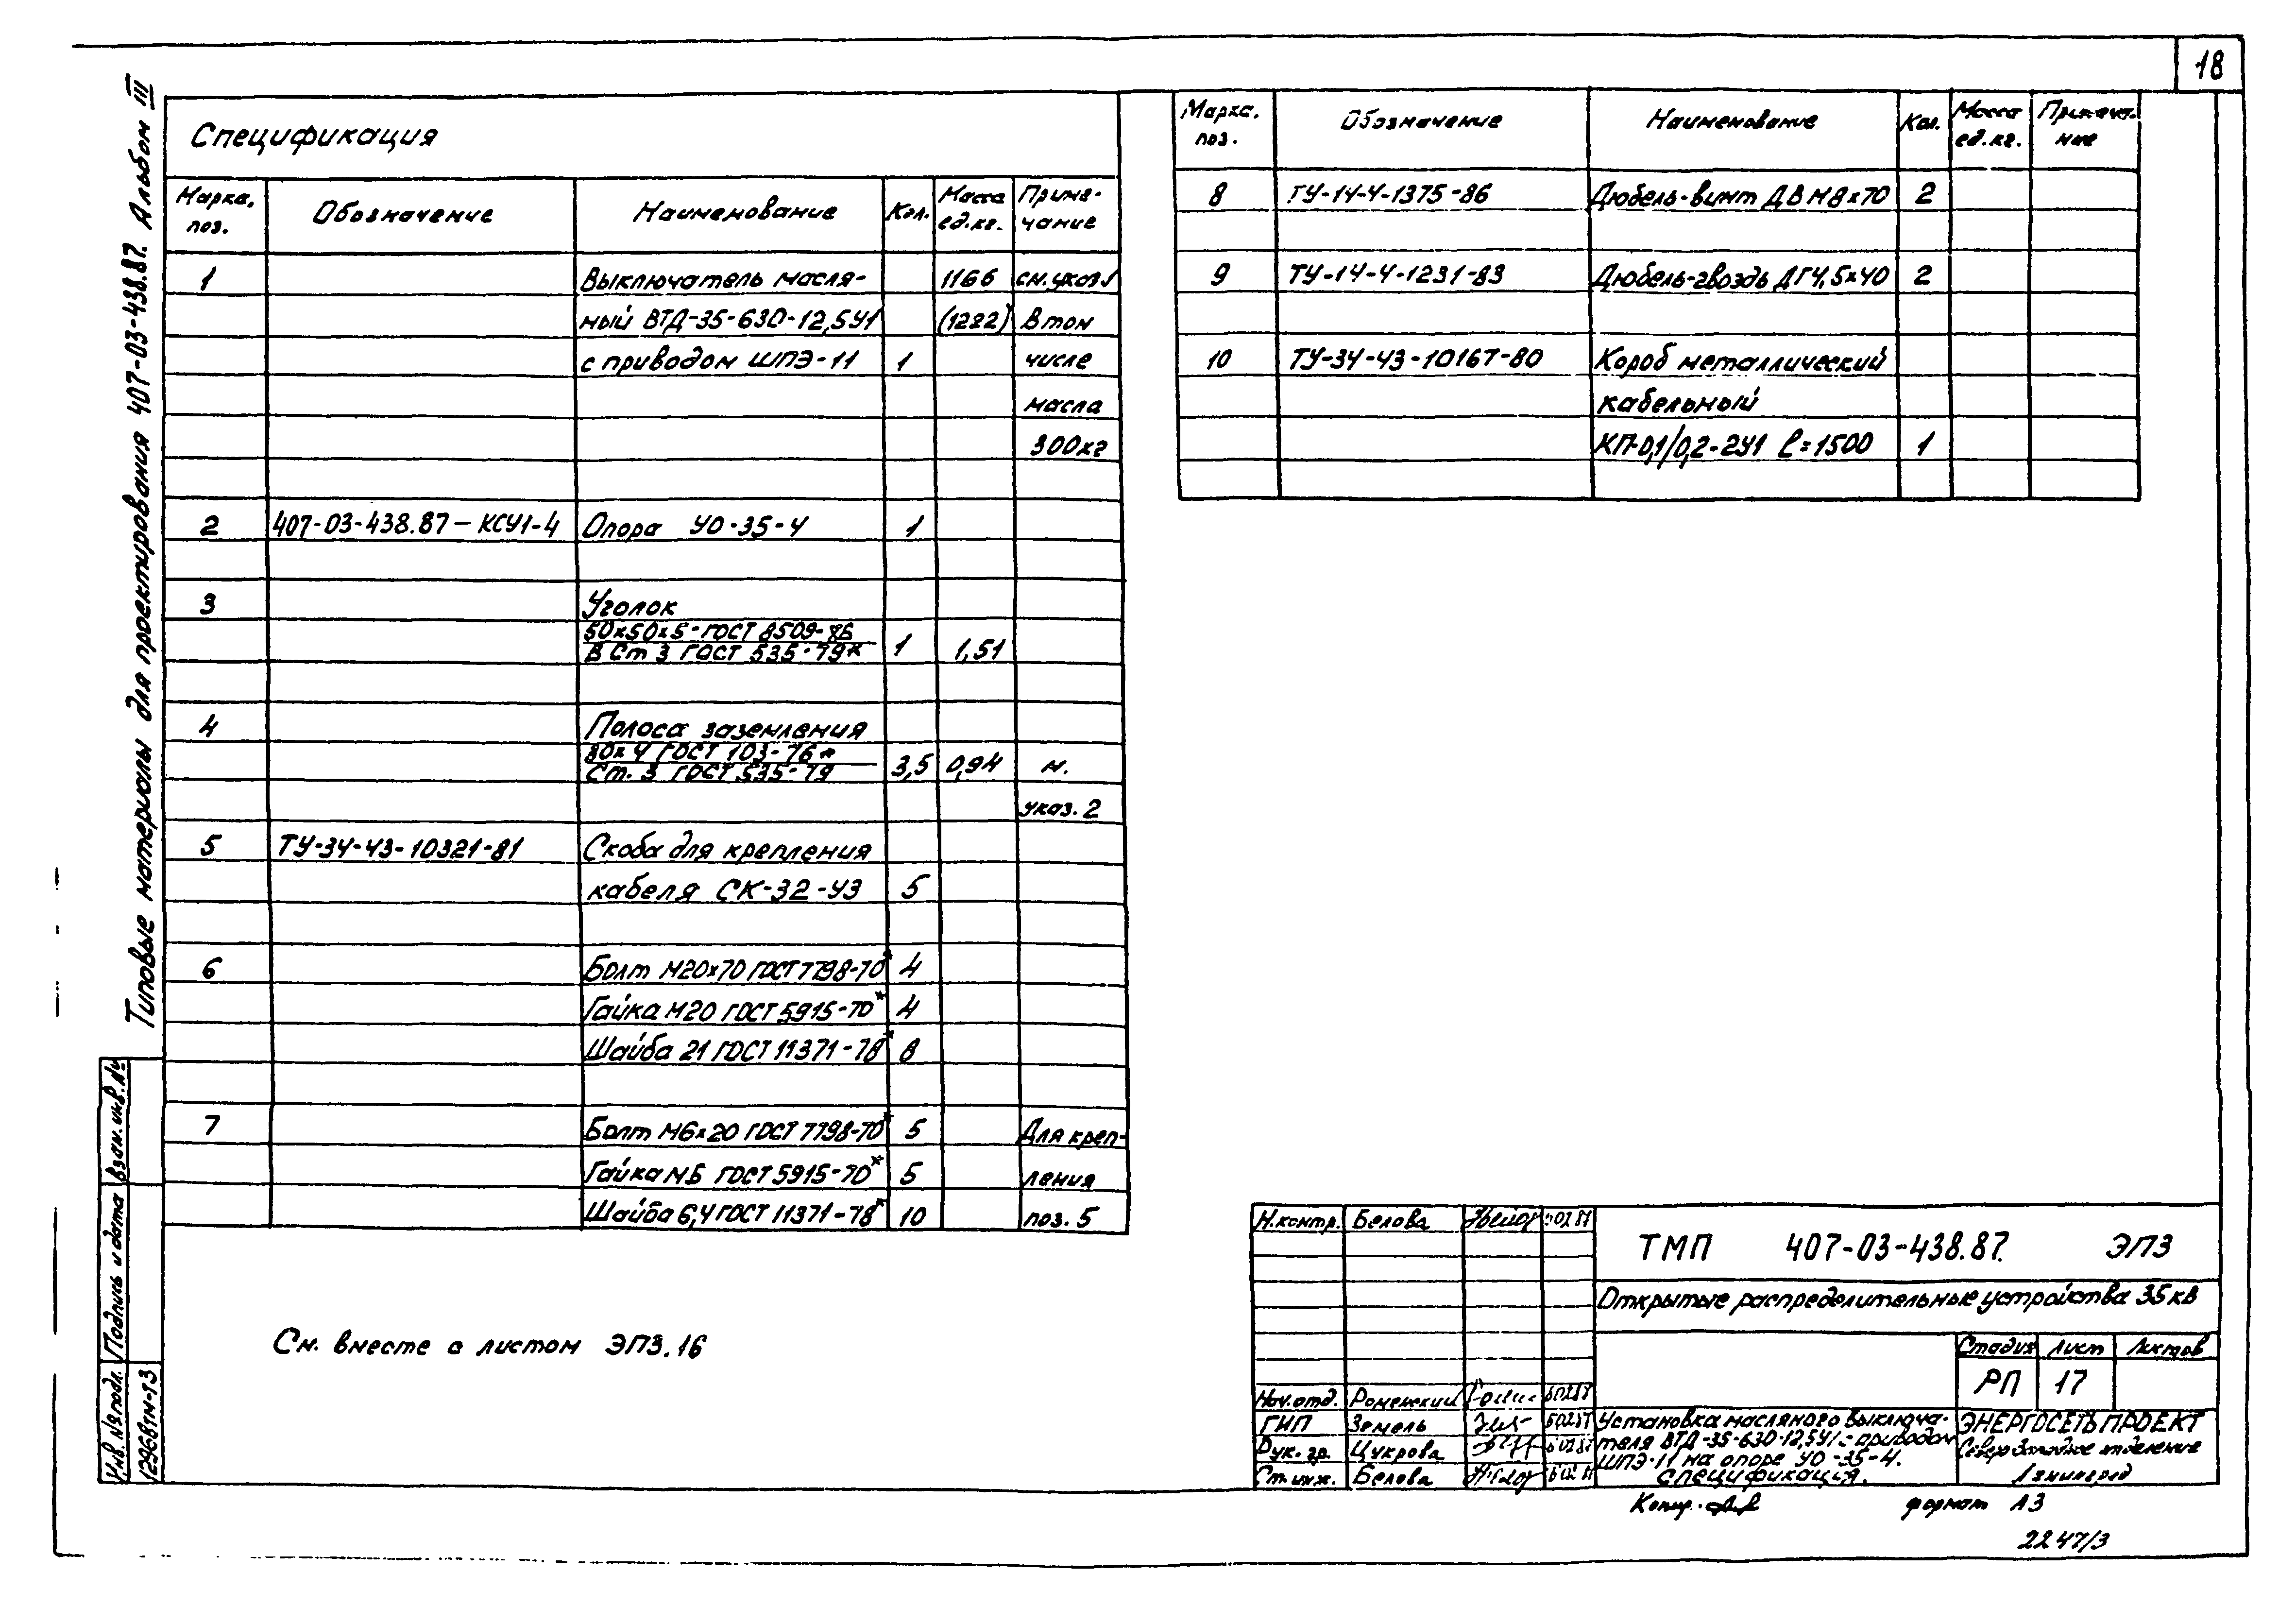 18
Типовые материалы для проектирования 407-03-438.87. Альбом III
Спецификация
Марка, поз. Обозначение Наименование Кол. Масса ед.кг. Приме-чание
1 Выключатель масля- 1166 см.указ1
ный ВТД-35-630-12,5У1 (1222) В том
с приводом ШПЭ-11 1 числе
масла
300кг
2 407-03-438.87-КСУ1-4 Опора УО-35-4 1
3 Уголок
50х50х5-ГОСТ 8509-86
В Ст 3 ГОСТ 535-79* 1 1,51
4 Полоса заземления
30х4 ГОСТ 103-76*
Ст. 3 ГОСТ 535-79 3,5 0,94 м.
указ. 2
5 ТУ-34-43-10321-81 Скоба для крепления
кабеля СК-32-У3 5
6 Болт М20х70 ГОСТ 7798-70* 4
Гайка М20 ГОСТ 5915-70* 4
Шайба 21 ГОСТ 11371-78* 8
7 Болт М6х20 ГОСТ 7798-70* 5 Для креп-
Гайка М6 ГОСТ 5915-70* 5 ления
Шайба 6,4 ГОСТ 11371-78* 10 поз. 5
Марка, поз. Обозначение Наименование Кол. Масса ед.кг. Примеча-ние
8 ТУ-14-4-1375-86 Дюбель-винт ДВ М8х70 2
9 ТУ-14-4-1231-83 Дюбель-гвоздь ДГ4,5х40 2
10 ТУ-34-43-10167-80 Короб металлический
кабельный
КП-0,1/0,2-2У1 l=1500 1
См. вместе с листом ЭП3.16
Инв. № подл. Подпись и дата Взам. инв. №
12968тм-т3
Н.контр. Белова
Нач.отд. Роменский
ГИП Земель
Рук. гр. Цукрова
Ст.инж. Белова
ТМП 407-03-438.87. ЭП3
Открытые распределительные устройства 35кв
Стадия Лист Листов
РП 17
Установка масляного выключа-
теля ВТД-35-630-12,5У1 с приводом
ШПЭ-11 на опоре УО-35-4.
Спецификация.
ЭНЕРГОСЕТЬПРОЕКТ
Северо-Западное отделение
Ленинград
Копир.
формат А3
2247/3